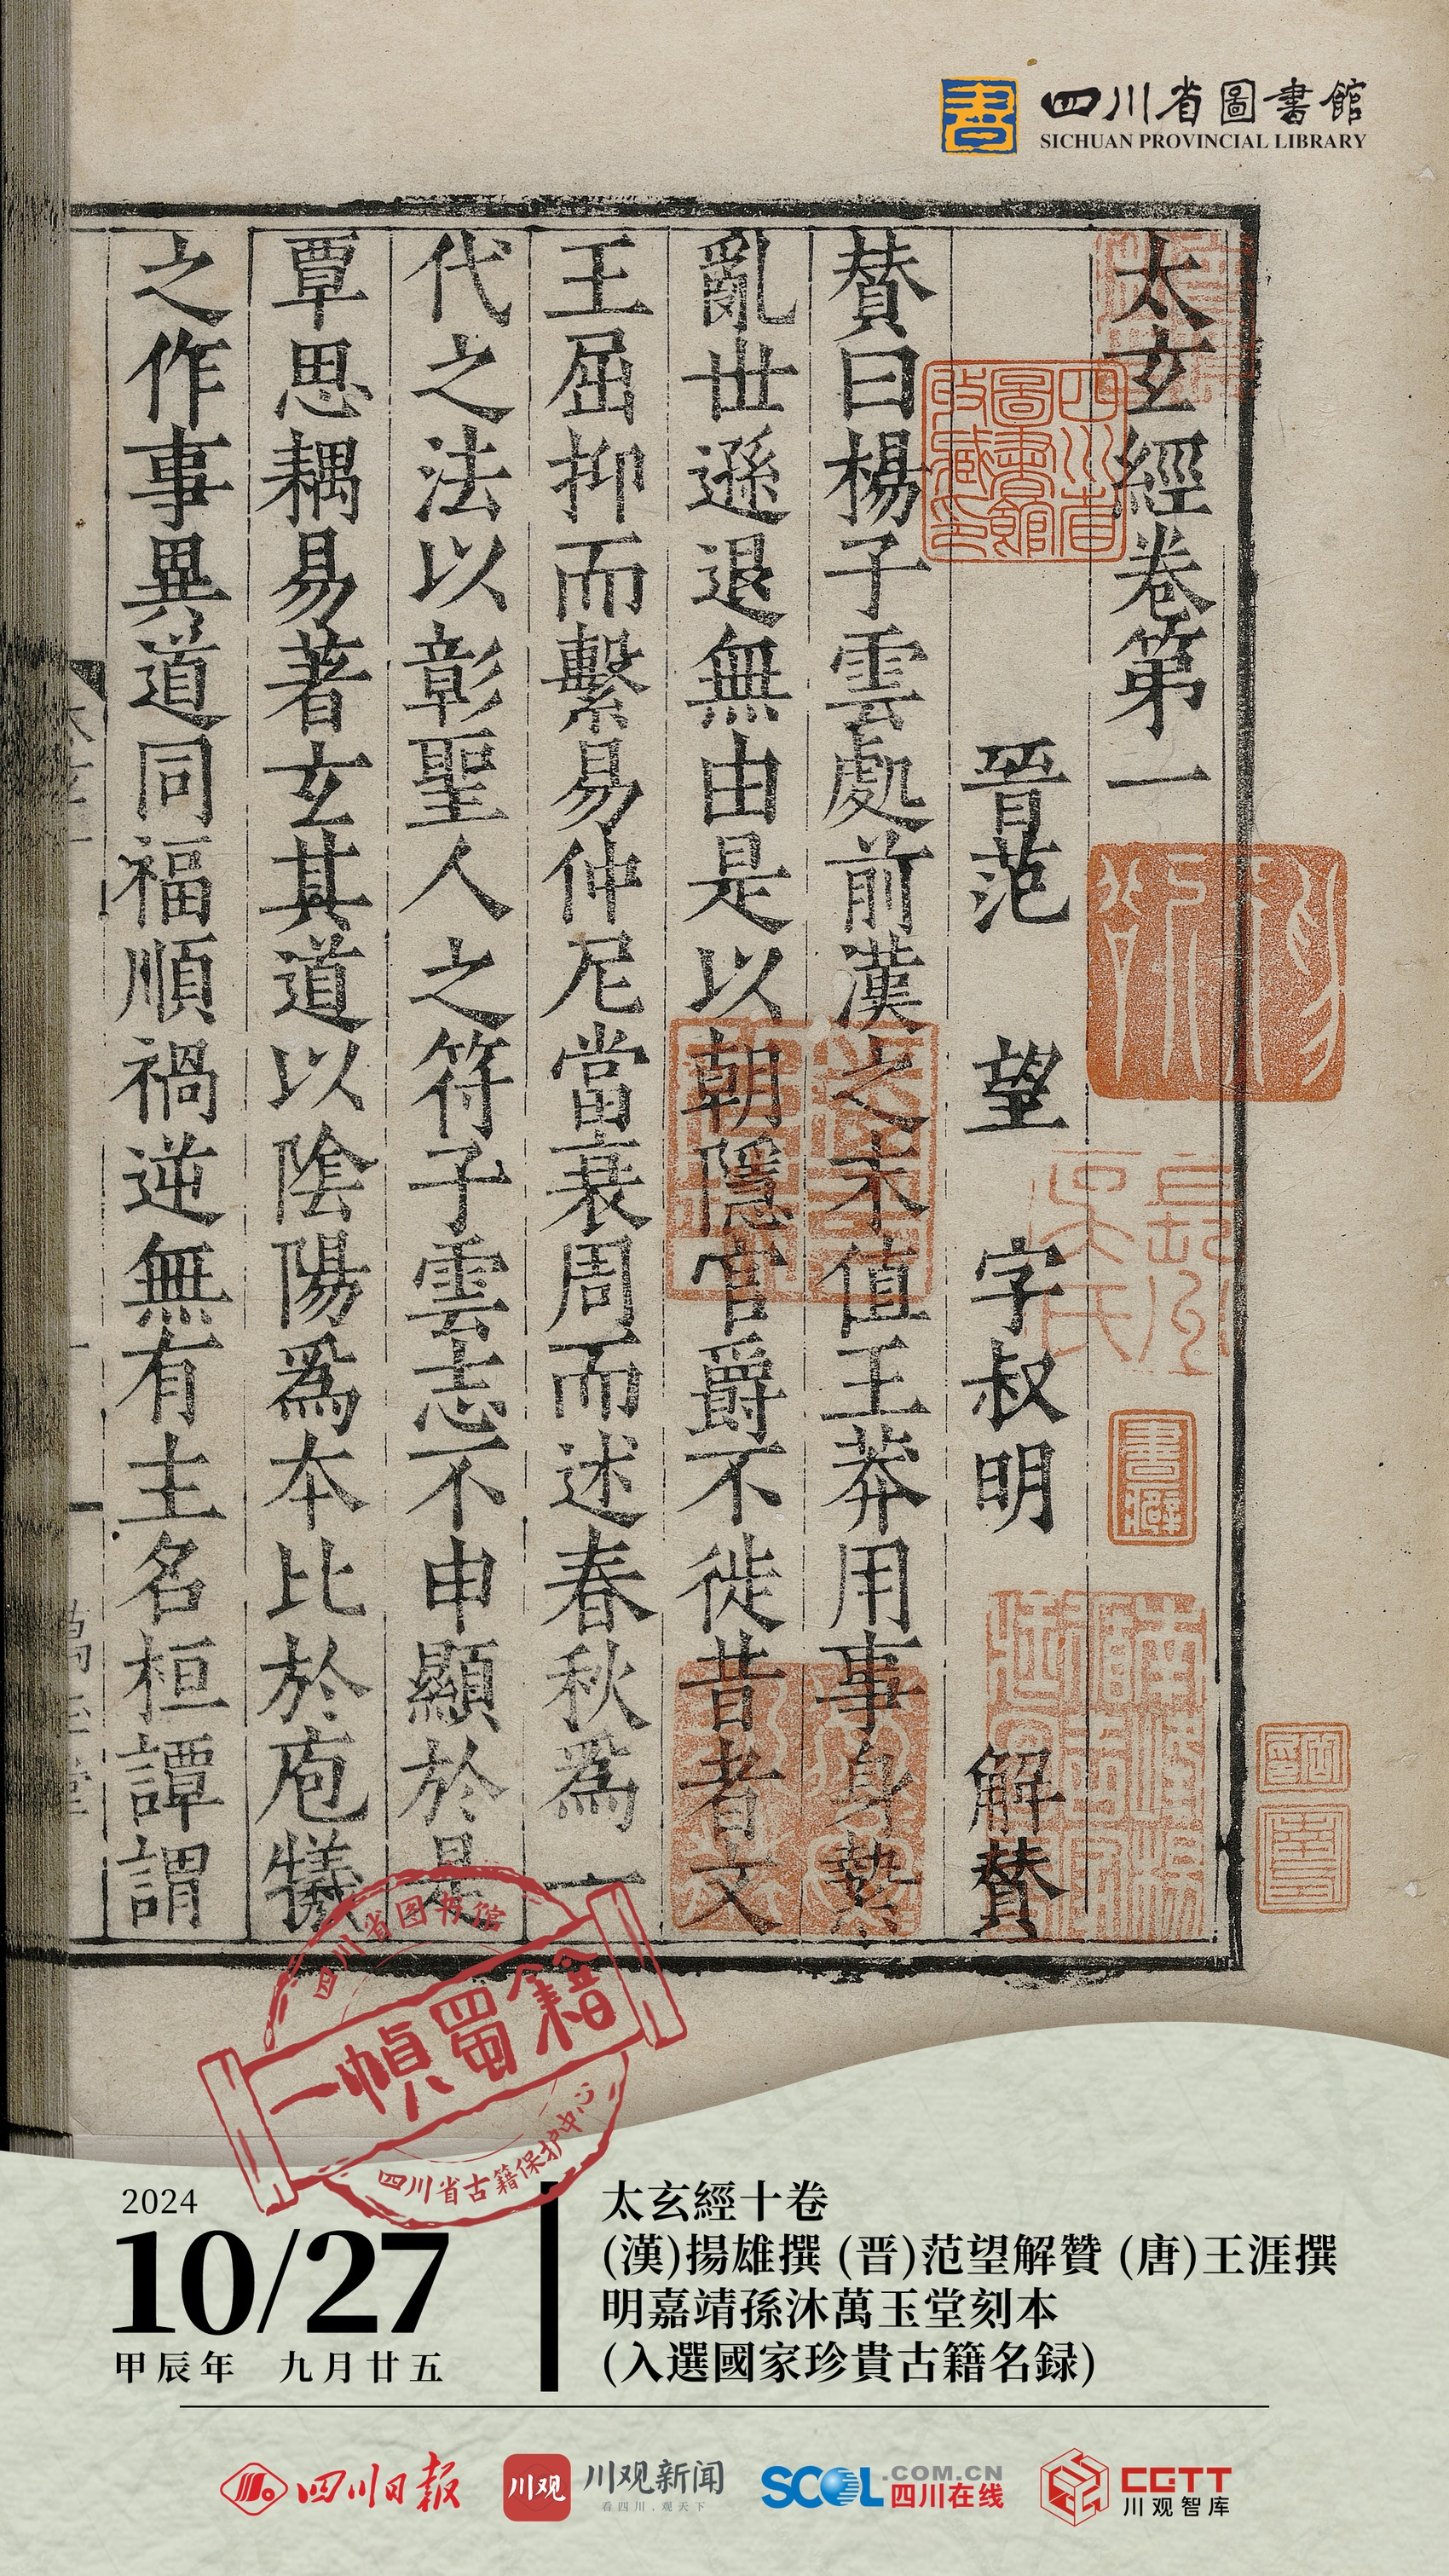 四川省圖書館
SICHUAN PROVINCIAL LIBRARY
太玄經卷第一
晉范 望 字叔明 解贊
賛曰楊子雲處前漢之末值王莽用事身縶
亂世遜退無由是以朝隱官爵不徙昔者文
王屈抑而繫易仲尼當衰周而述春秋爲一
代之法以彰聖人之符子雲志不申顯於是
覃思耦易著玄其道以陰陽爲本比於庖犧
之作事異道同福順禍逆無有主名桓譚謂
四川省圖書館收藏印
書癖
四川省图书馆
一幀蜀籍
四川省古籍保护中心
2024
10/27
甲辰年 九月廿五
太玄經十卷
(漢)揚雄撰 (晋)范望解贊 (唐)王涯撰
明嘉靖孫沐萬玉堂刻本
(入選國家珍貴古籍名録)
四川日报
川观
川观新闻
看四川,观天下
SCOL.COM.CN
四川在线
CGTT
川观智库